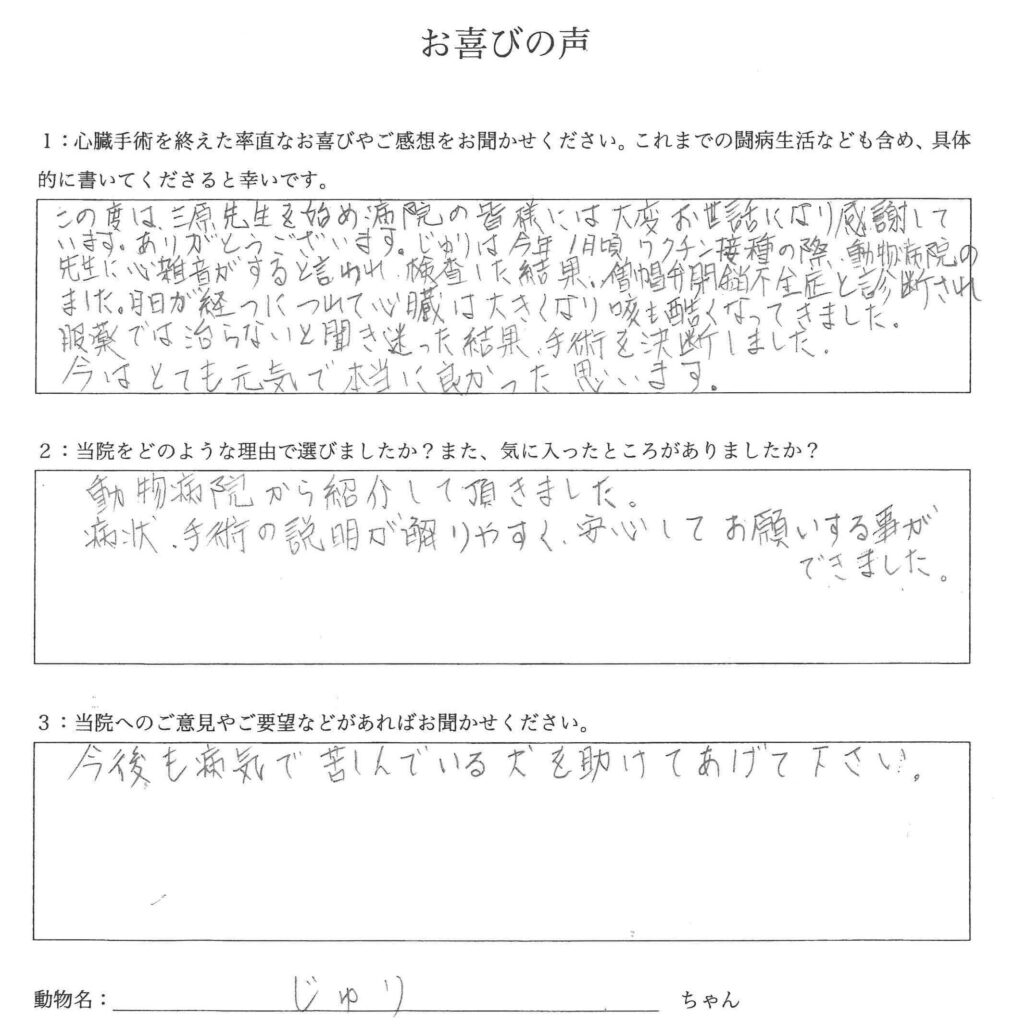 お喜びの声
1：心臓手術を終えた率直なお喜びやご感想をお聞かせください。これまでの闘病生活なども含め、具体
的に書いてくださると幸いです。
この度は、三原先生を始め病院の皆様には大変お世話になり感謝して
います。ありがとうございます。じゅりは今年1月頃ワクチン接種の際、動物病院の
先生に心雑音がすると言われ、検査した結果、僧帽弁閉鎖不全症と診断され
ました。月日が経つにつれて心臓は大きくなり咳も酷くなってきました。
服薬では治らないと聞き迷った結果、手術を決断しました。
今はとても元気で本当に良かった思います。
2：当院をどのような理由で選びましたか？また、気に入ったところがありましたか？
動物病院から紹介して頂きました。
病状、手術の説明が解りやすく、安心してお願いする事が
できました。
3：当院へのご意見やご要望などがあればお聞かせください。
今後も病気で苦しんでいる犬を助けてあげて下さい。
動物名：じゅり ちゃん